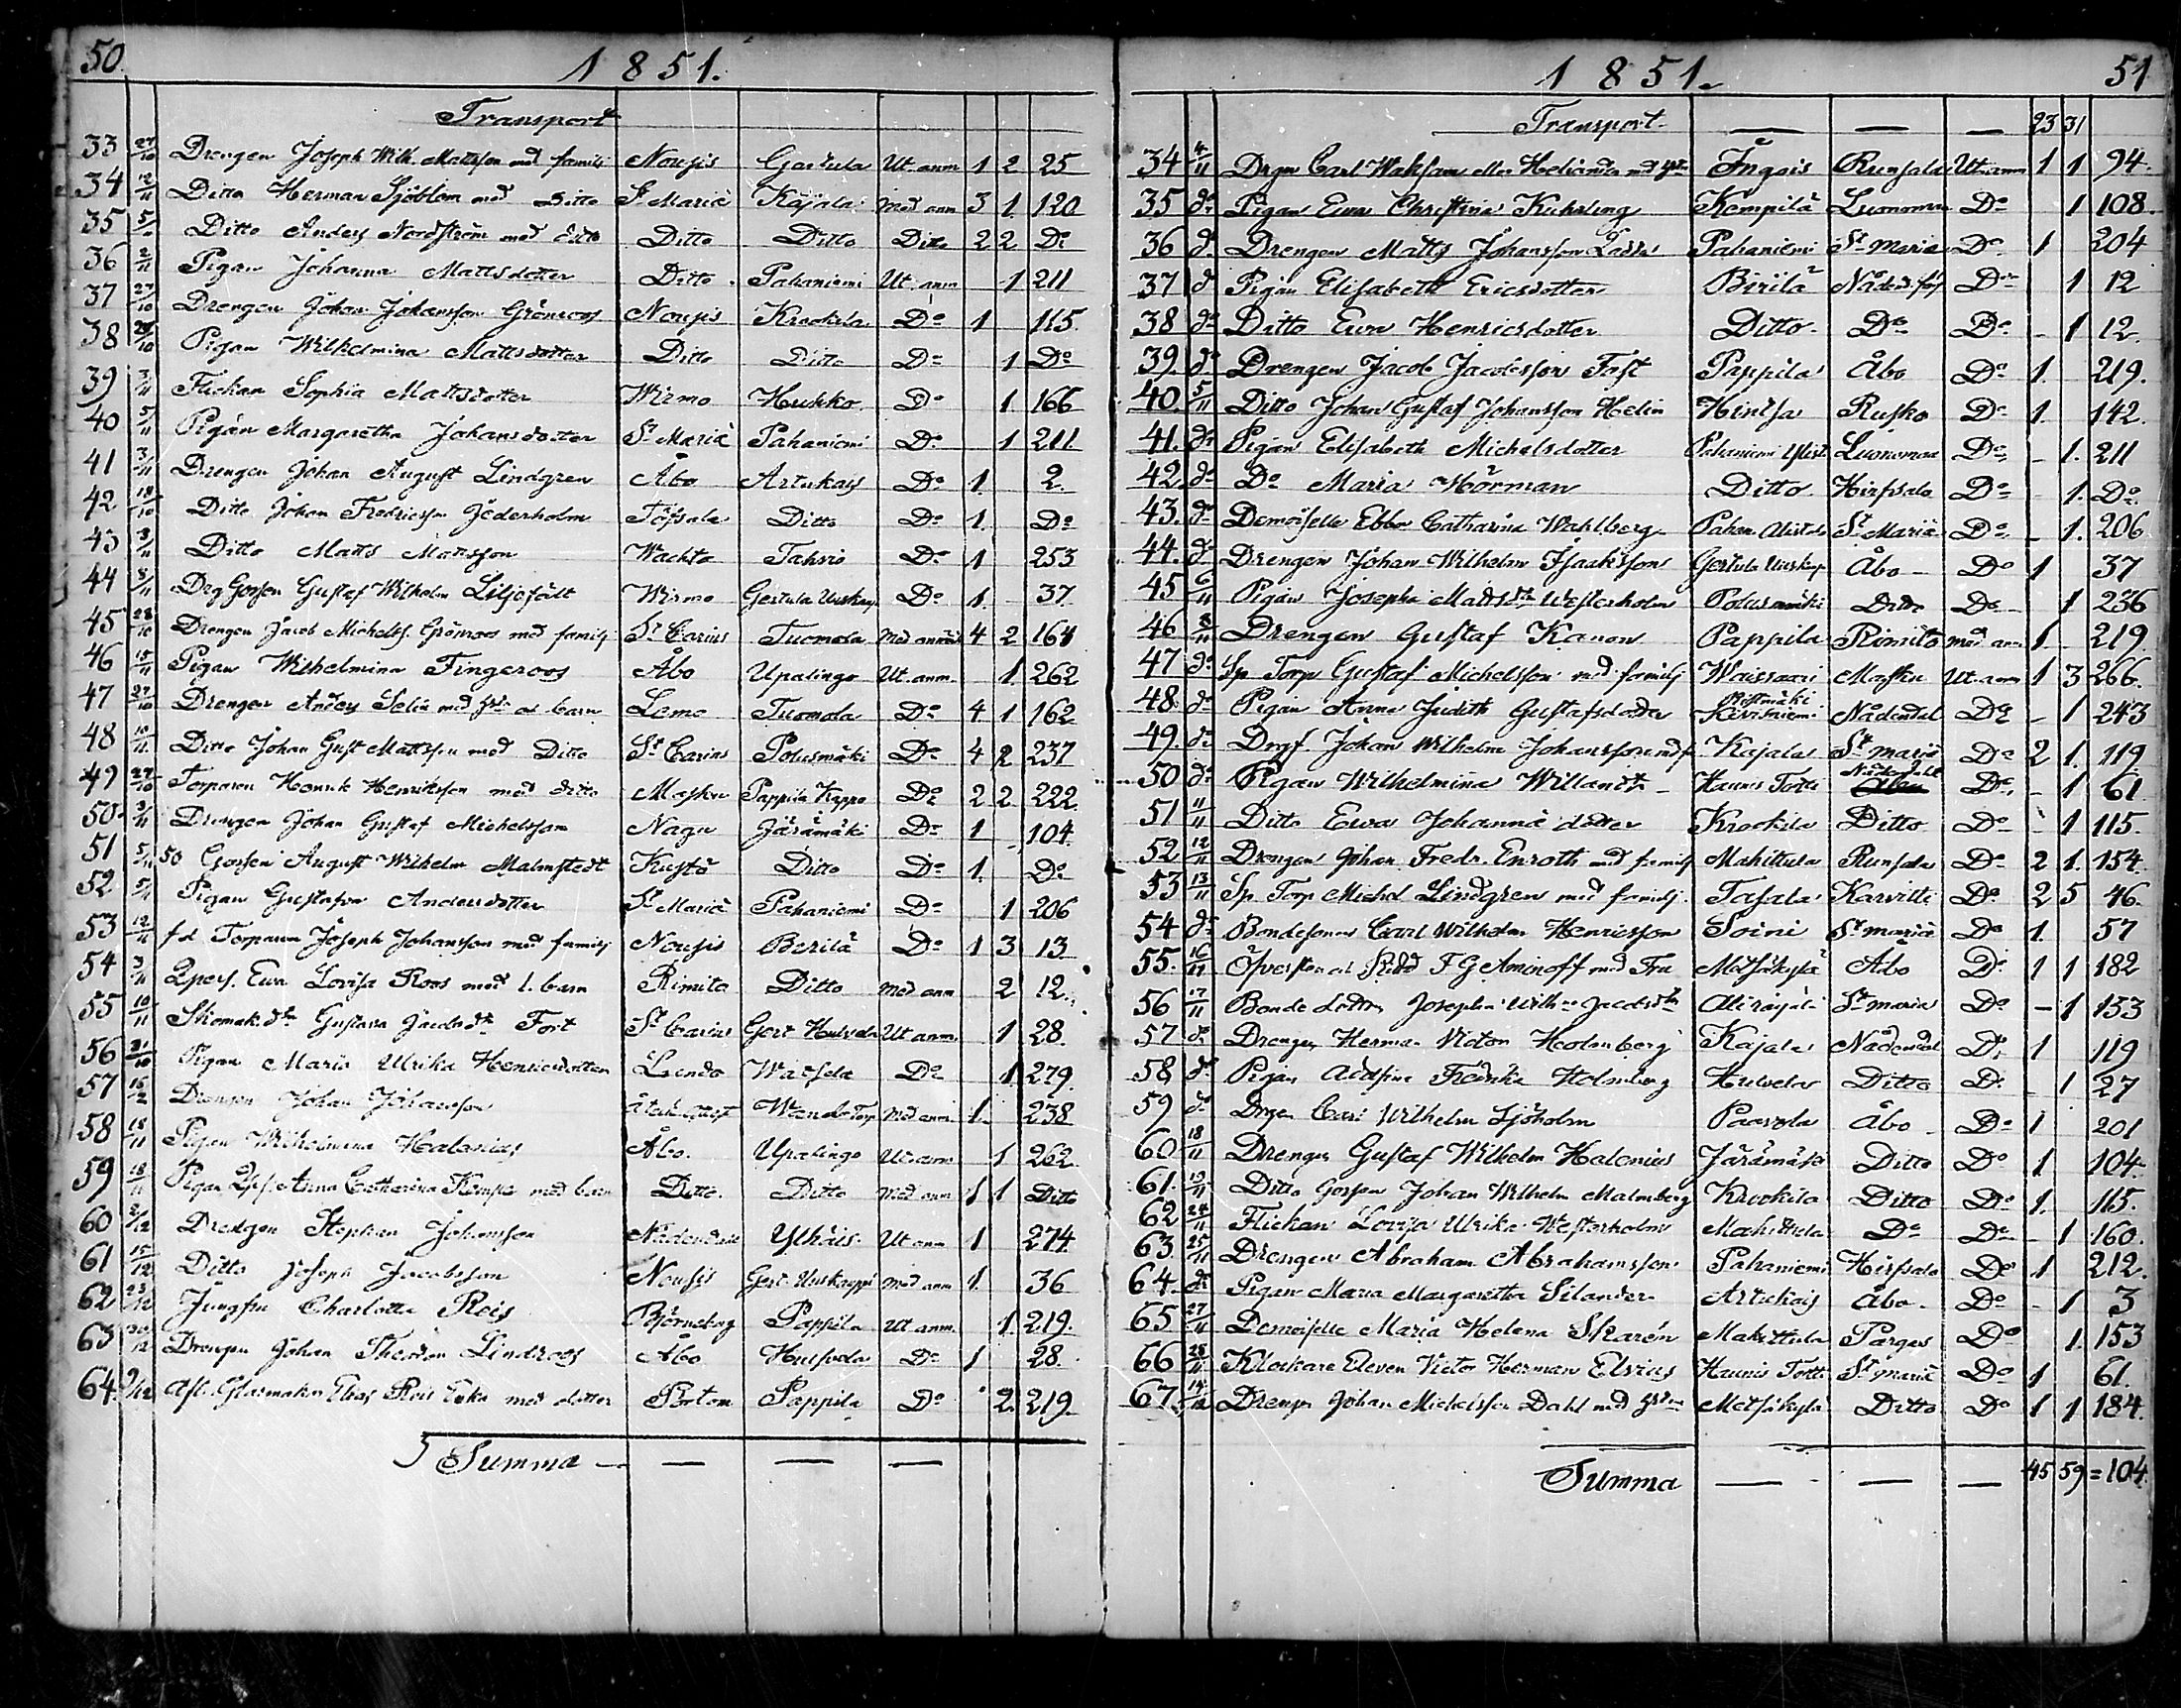 50.
1851.
Transport
33 27/10 Drengen Joseph Wilh. Mattsson med familj Nousis Gertula Ut. anm 1 2 25
34 12/11 Ditto Herman Sjöblom med Ditto St Mariæ Kajala Med anm 3 1 120
35 5/11 Ditto Anders Nordström med ditto Ditto Ditto Ditto 2 2 Do
36 2/11 Pigan Johanna Mattsdotter Ditto Pahaniemi Ut. anm 1 211
37 27/10 Drengen Johan Johansson Grönroos Nousis Krookila Do 1 115.
38 /10 Pigan Wilhelmina Mattsdotter Ditto Ditto Do 1 Do
39 3/11 Flickan Sophia Mattsdotter Wirmo Hukko Do 1 166
40 5/11 Pigan Margaretha Johansdotter St Mariæ Pahaniemi Do 1 211
41 3/11 Drengen Johan August Lindgren Åbo Artukais Do 1 2.
42 18/10 Ditto Johan Fredricsson Jäderholm Töfsala Ditto Do 1. Do
43 3/11 Ditto Matts Mattsson Wachto Tahvio Do 1 253
44 8/11 Drg Gossen Gustaf Wilhelm Liljefält Wirmo Gertula Uuskap Do 1. 37
45 28/10 Drengen Jacob Michelss. Grönroos med familj St Carins Tuomola Med anm 4 2 164
46 15/11 Pigan Wilhelmina Fingeroos Åbo Upalingo Ut. anm. 1. 262
47 27/10 Drengen Anders Selin med hst. o barn Lemo Tuomola Do 4 1 162
48 10/11 Ditto Johan Gust Mattsson med Ditto St Carins Polusmäki Do 4 2 237
49 27/10 Torparen Henrik Henriksson med ditto Masku Pappila Do 2 2 222.
50. 3/11 Drengen Johan Gustaf Michelsson Nagu Järämäki Do 1 104.
51 5/11 Gossen August Wilhelm Malmstedt Kustö Ditto Do 1. Do
52 5/11 Pigan Gustafva Andersdotter St Mariæ Pahaniemi Do 1 206
53 12/11 fd Torparen Joseph Johansson med familj Nousis Berilä Do 1 3 13
54 3/11 Qpers. Eva Lovisa Roos med 1. barn Rimito Ditto Med anm 2 12.
55 10/11 Skomak.dr Gustava Jacobsdr Fort St Carins Gert Hulvela Ut anm. 1 28.
56 31/10 Pigan Maria Ulrika Henricsdotter Lundo Do 1 279.
57 15/12 Drengen Johan Johansson Med anm. 1. 238
58 18/11 Pigan Wilhelmina Halenius Åbo. Upalingo Ut anm 1 262.
59 18/11 Pigan Anna Catharina Kempe med barn Ditto. Ditto Med anm 1 1 Ditto
60 2/12 Drengen Stephan Johansson Nådendal Ylhäis Ut anm 1 274.
61 15/12 Ditto Joseph Jacobsson Nousis Gert. Uuskappi Med anm 1. 36
62 23/12 Jungfru Charlotta Rois Björneborg Pappila Ut anm. 1. 219.
63 30/12 Drengen Johan Theodor Lindroos Åbo Hulvela Do 1 28.
64. /12 Afl. Glasmakar Elias Rois Enka med dotter Pappila Do 2. 219.
Summa
1851.
51
Transport 23 31
34 4/11 Drgn Carl eller Heliander med hst. Ingois Runsala Ut. anm 1 1 94.
35 do Pigan Eva Christina Kuhrling Kempilä Luonomaa Do 1 108.
36 do Drengen Matts Johansson Pahaniemi St Mariæ Do 1 204
37 do Pigan Elisabeth Ericsdotter Birilä Nådendal Do 1 12
38 do Ditto Eva Henricsdotter Ditto Do Do 1 12.
39. do Drengen Jacob Jacobsson Fast Pappila Åbo Do 1. 219.
40. 5/11 Ditto Johan Gustaf Johansson Helin Hintsa Rusko Do 1. 142.
41. do Pigan Elisabeth Michelsdotter Pahaniemi Luonomaa Do 1. 211
42. do Do Maria Hörman Ditto Hirfsala Do 1. Do
43. do Demoiselle Ebba Catharina Wahlberg Pahan Alistalo St Mariæ Do 1. 206
44. do Drengen Johan Wilhelm Isaaksson Gertula Uuskap Åbo Do 1 37
45 6/11 Pigan Josepha Mattsdtr Westerholm Polusmäki Ditto Do 1 236
46 8/11 Drengen Gustaf Kanon Pappila Rimito med anm 1 219.
47 do Sp Torp Gustaf Michelsson med familj Waissaari Masku Ut anm 1 3 266.
48. do Pigan Anna Judith Gustafsdotter Ristimäki Nådendal Do 1 243
49. do Drgf. Johan Wilhelm Johansson med f Kajala St Mariæ Do 2 1. 119
50 do Pigan Wilhelmina Willandt Haunis Totti Nådendal Do 1 61
51 11/11 Ditto Ewa Johanna dotter Krookila Ditto Do 1 115.
52 12/11 Drengen Johan Fredr. Enroth med familj Mahittula Runsala Do 2 1. 154.
53 13/11 Sp Torp Michel Lindgren med familj. Tasala Karvitti Do 2 5 46.
54 do Bondesonen Carl Wilhelm Henricsson Soini St Mariæ Do 1. 57
55. 16/11 Öfversten o Ridd F G Aminoff med Fru Metsäkylä Åbo Do 1 1 182
56 17/11 Bonde dottr. Josepha Wilhna Jacobsdtr St Mariæ Do 1 153
57. do Drengen Herman Victor Holmberg Kajala Nådendal Do 1 119
58 do Pigan Adolfina Fredrika Holmberg Hulvela Ditto Do 1 27
59 do Drgen Carl Wilhelm Sjöholm Paavola Åbo Do 1 201
60. 18/11 Drengen Gustaf Wilhelm Halenius Järämäki Ditto Do 1 104.
61. 19/11 Ditto Gossen Johan Wilhelm Malmberg Krookila Ditto Do 1. 115.
62 24/11 Flickan Lovisa Ulrika Westerholm Mahittula Do Do 1 160.
63. 25/11 Drengen Abraham Abrahamsson Pahaniemi Hirfsala Do 1 212.
64. do Pigan Maria Margaretha Silander Artukais Åbo. Do 1 3
65 27/11 Demoiselle Maria Helena Skarén Mahittula Pargas Do 1. 153
66 28/11 Klockare Eleven Victor Herman Elvius Haunis Totti St Mariæ Do 1 61.
67. 14/12 Drengen Johan Michelsson Dahl med hstr Metsäkylä Ditto Do 1 1 184.
Summa 45 59 = 104.